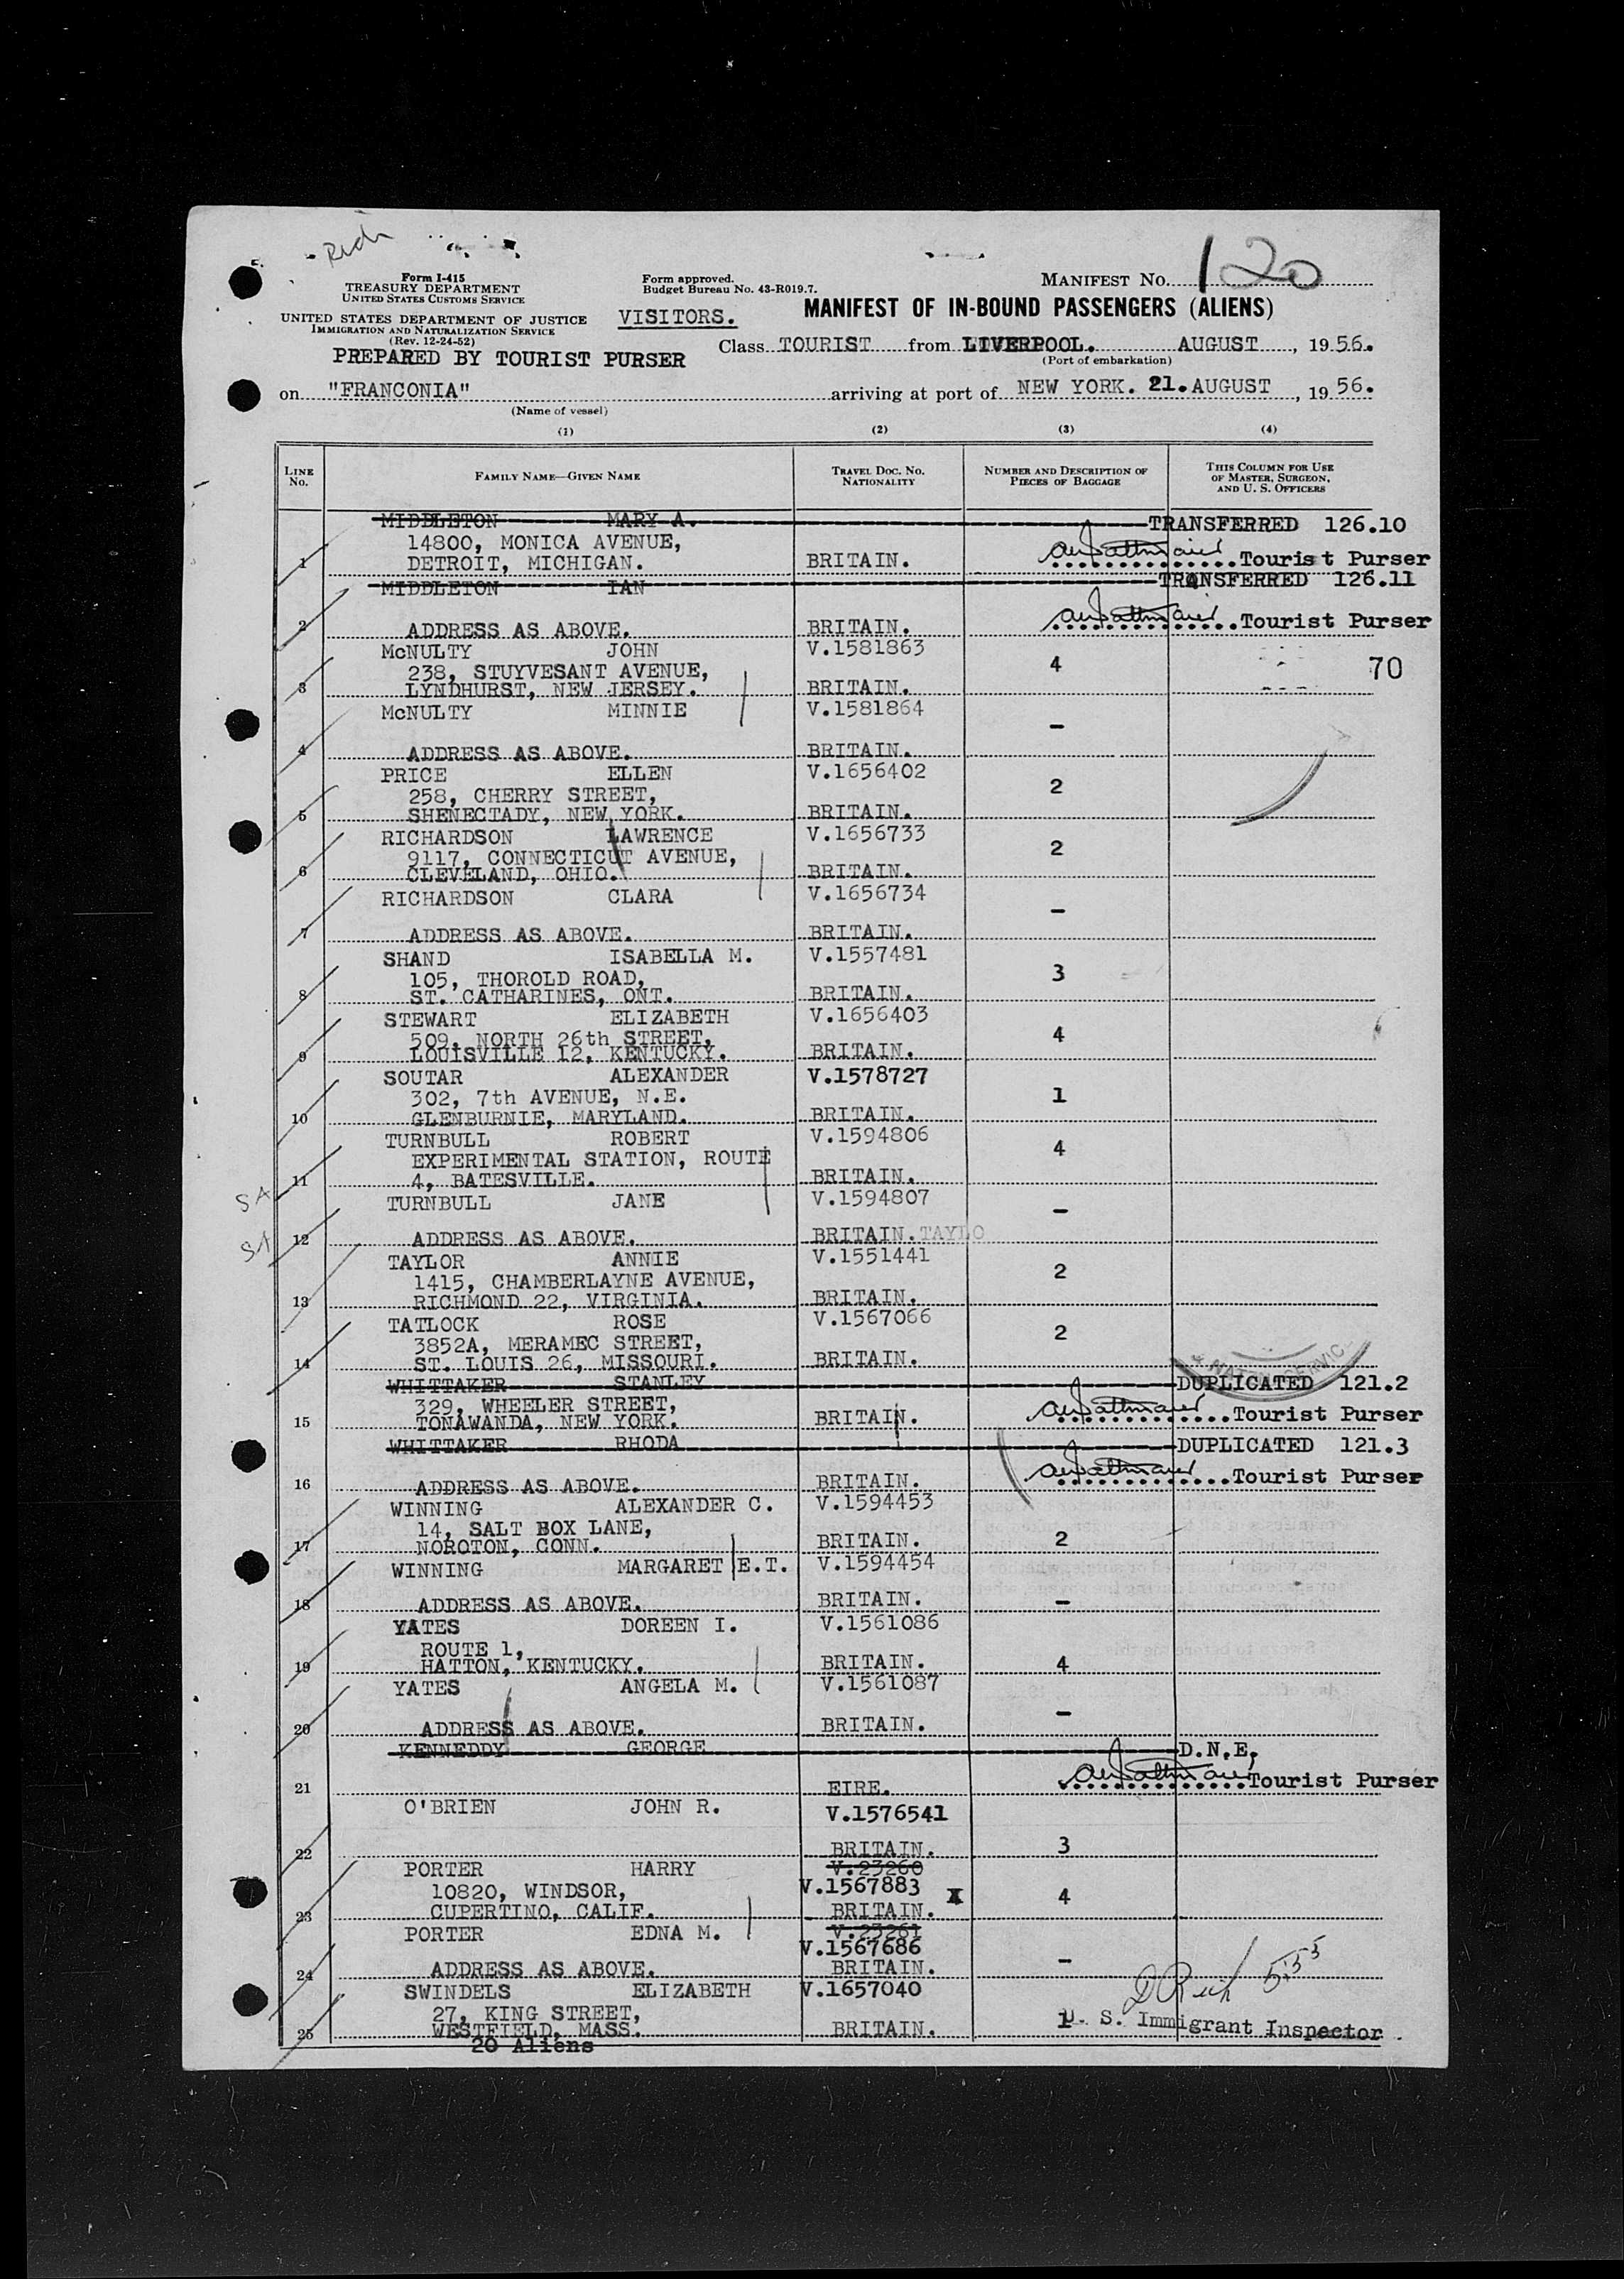 Rich
Form I-415
TREASURY DEPARTMENT
UNITED STATES CUSTOMS SERVICE
Form approved.
Budget Bureau No. 43-R019.7.
MANIFEST NO. 120
UNITED STATES DEPARTMENT OF JUSTICE
IMMIGRATION AND NATURALIZATION SERVICE
(Rev. 12-24-52)
VISITORS.
MANIFEST OF IN-BOUND PASSENGERS (ALIENS)
PREPARED BY TOURIST PURSER
Class TOURIST from LIVERPOOL. AUGUST, 1956.
(Port of embarkation)
on "FRANCONIA" arriving at port of NEW YORK. 21. AUGUST, 1956.
(Name of vessel)
(1) (2) (3) (4)
LINE NO.
FAMILY NAME—GIVEN NAME
TRAVEL DOC. NO. NATIONALITY
NUMBER AND DESCRIPTION OF PIECES OF BAGGAGE
THIS COLUMN FOR USE OF MASTER, SURGEON, AND U. S. OFFICERS
MIDDLETON MARY A. TRANSFERRED 126.10
14800, MONICA AVENUE,
1 DETROIT, MICHIGAN. BRITAIN. Tourist Purser
MIDDLETON IAN TRANSFERRED 126.11
2 ADDRESS AS ABOVE. BRITAIN. Tourist Purser
McNULTY JOHN V.1581863
238, STUYVESANT AVENUE, 4 70
3 LYNDHURST, NEW JERSEY. BRITAIN.
McNULTY MINNIE V.1581864
–
4 ADDRESS AS ABOVE. BRITAIN.
PRICE ELLEN V.1656402
258, CHERRY STREET, 2
5 SHENECTADY, NEW YORK. BRITAIN.
RICHARDSON LAWRENCE V.1656733
9117, CONNECTICUT AVENUE, 2
6 CLEVELAND, OHIO. BRITAIN.
RICHARDSON CLARA V.1656734
–
7 ADDRESS AS ABOVE. BRITAIN.
SHAND ISABELLA M. V.1557481
105, THOROLD ROAD, 3
8 ST. CATHARINES, ONT. BRITAIN.
STEWART ELIZABETH V.1656403
509, NORTH 26th STREET, 4
9 LOUISVILLE 12, KENTUCKY. BRITAIN.
SOUTAR ALEXANDER V.1578727
302, 7th AVENUE, N.E. 1
10 GLENBURNIE, MARYLAND. BRITAIN.
TURNBULL ROBERT V.1594806
EXPERIMENTAL STATION, ROUTE 4
11 4, BATESVILLE. BRITAIN.
SA
TURNBULL JANE V.1594807
–
SA
12 ADDRESS AS ABOVE. BRITAIN. TAYLO
TAYLOR ANNIE V.1551441
1415, CHAMBERLAYNE AVENUE, 2
13 RICHMOND 22, VIRGINIA. BRITAIN.
TATLOCK ROSE V.1567066
3852A, MERAMEC STREET, 2
14 ST. LOUIS 26, MISSOURI. BRITAIN.
WHITTAKER STANLEY DUPLICATED 121.2
329, WHEELER STREET,
15 TONAWANDA, NEW YORK. BRITAIN. Tourist Purser
WHITTAKER RHODA DUPLICATED 121.3
16 ADDRESS AS ABOVE. BRITAIN. Tourist Purser
WINNING ALEXANDER C. V.1594453
14, SALT BOX LANE,
17 NOROTON, CONN. BRITAIN. 2
WINNING MARGARET E.T. V.1594454
18 ADDRESS AS ABOVE. BRITAIN. –
YATES DOREEN I. V.1561086
ROUTE 1,
19 HATTON, KENTUCKY. BRITAIN. 4
YATES ANGELA M. V.1561087
20 ADDRESS AS ABOVE. BRITAIN. –
KENNEDDY GEORGE D.N.E,
21 EIRE. Tourist Purser
O'BRIEN JOHN R. V.1576541
22 BRITAIN. 3
PORTER HARRY V.23260
10820, WINDSOR, V.1567883 X 4
23 CUPERTINO, CALIF. BRITAIN.
PORTER EDNA M. V.23261
V.1567686
24 ADDRESS AS ABOVE. BRITAIN. –
SWINDELS ELIZABETH V.1657040
D Rich 555
27, KING STREET,
25 WESTFIELD, MASS. BRITAIN. 1 U. S. Immigrant Inspector
20 Aliens